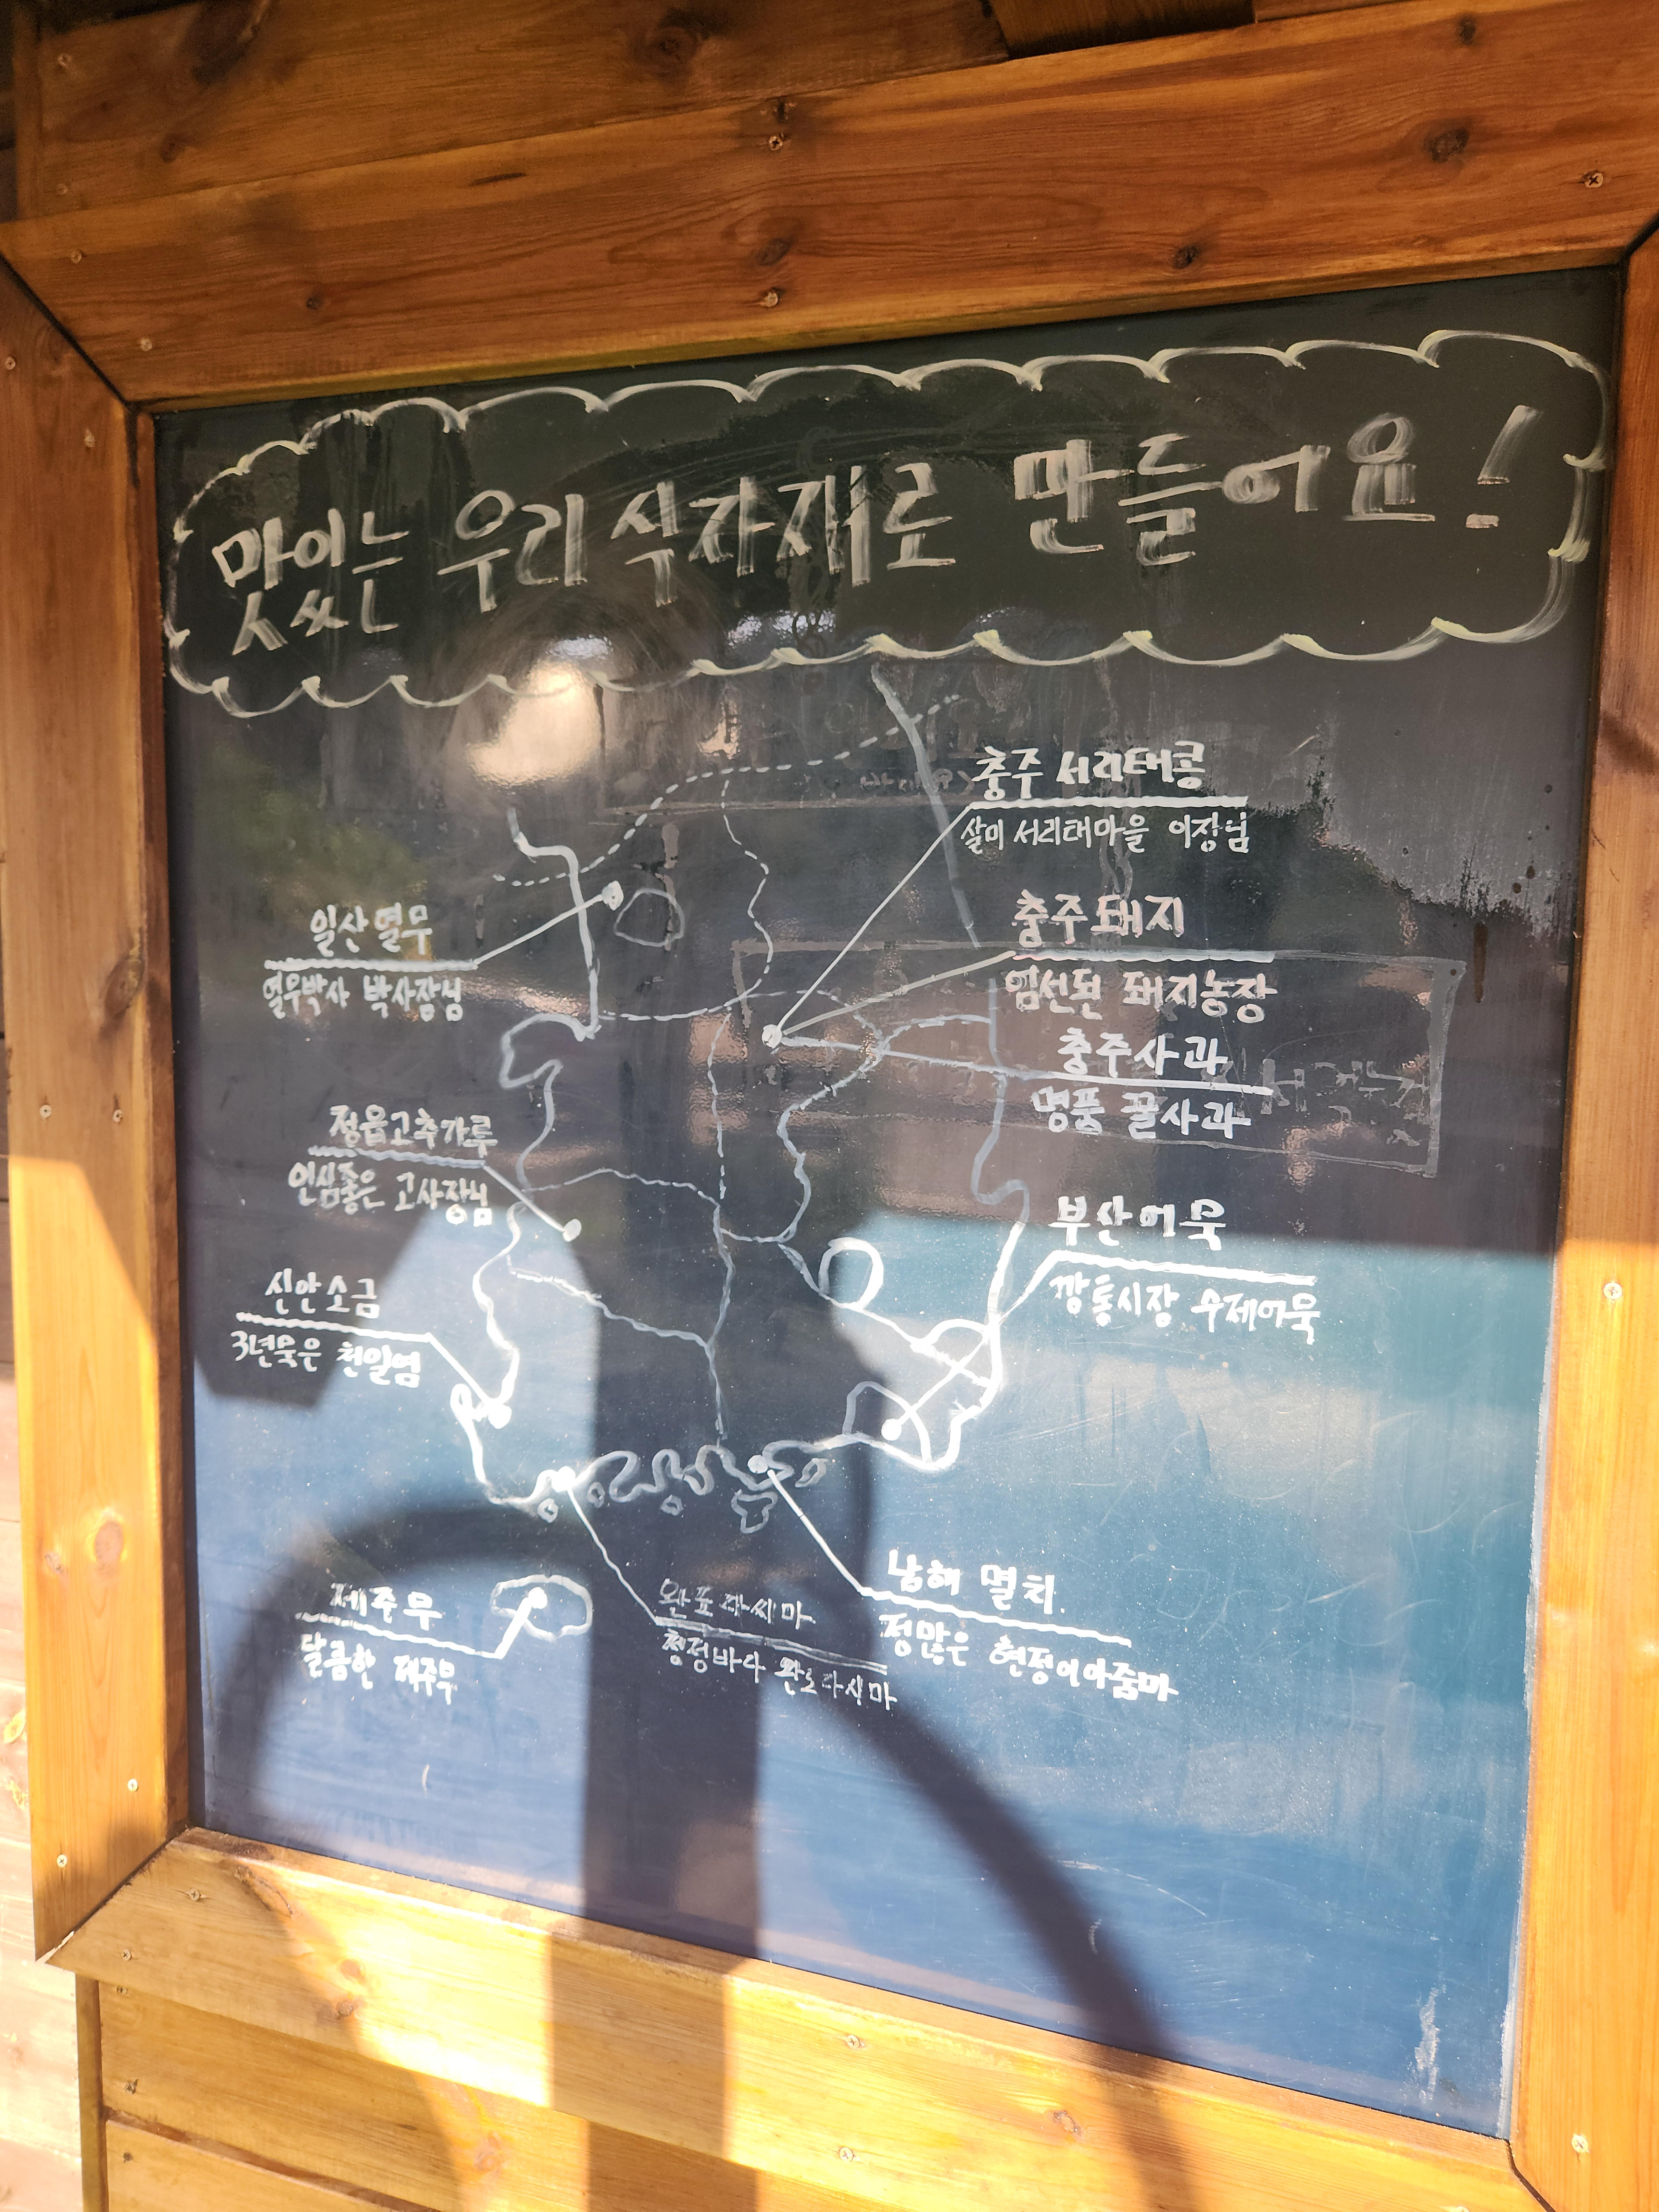 맛있는 우리 식자재로 만들어요!
충주 서리태콩
살미 서리태마을 이장님
일산 열무
열무박사 박사장님
충주 돼지
엄선된 돼지농장
충주사과
명품 꿀사과
정읍고추가루
인심좋은 고사장님
부산어묵
깡통시장 수제어묵
신안소금
3년묵은 천일염
남해 멸치.
정많은 현정이아줌마
제주무
달콤한 제주무
완도다시마
청정바다 완도다시마